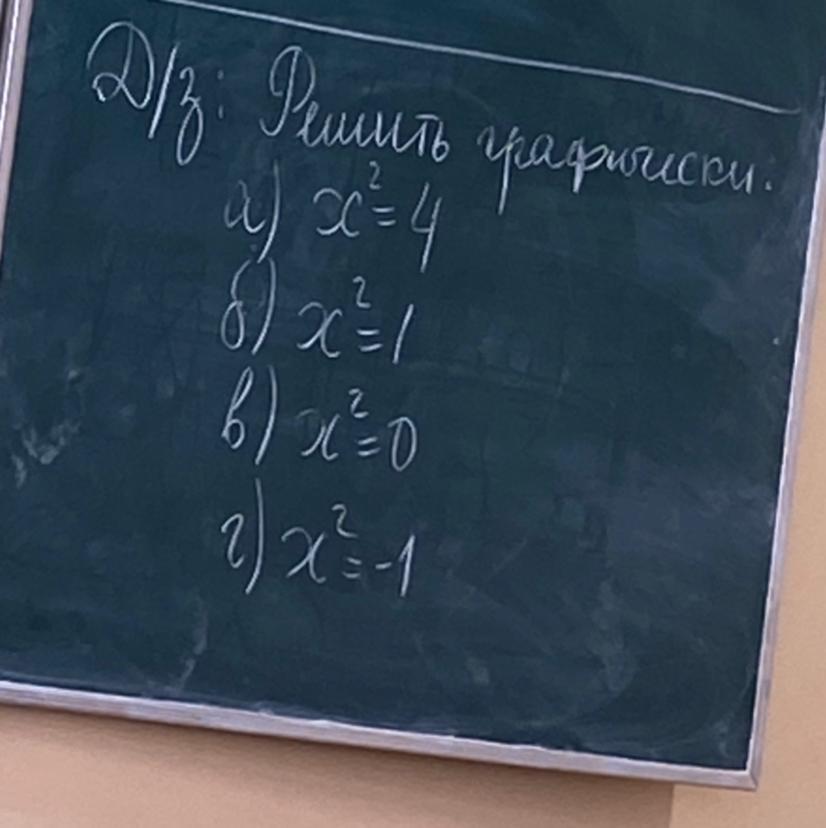 Д/з: Решить графически:
а) x² = 4
б) x² = 1
в) x² = 0
г) x² = -1